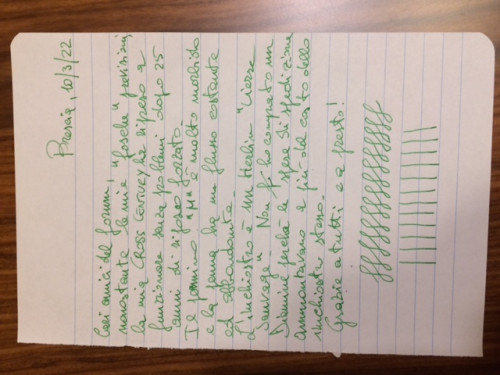 Brescia, 10/3/22
Cari amici del forum,
nonostante le mie "fosche" previsioni
la mia Cross Century ha ripreso a
funzionare senza problemi dopo 25
anni di riposo forzato.
Il pennino "M" è molto morbido
e la penna ha un flusso costante
ed abbondante.
L'inchiostro è un Herbin "Lierre
Sauvage". Non ho comprato un
Diamine perché le spese di spedizione
ammontavano a più del costo dello
inchiostro stesso.
Grazie a tutti e a presto!